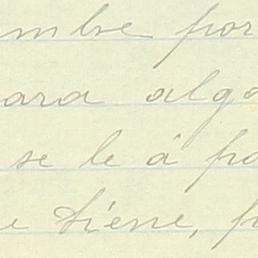 mbre por
ara alg
se le á pa
e tiene, p